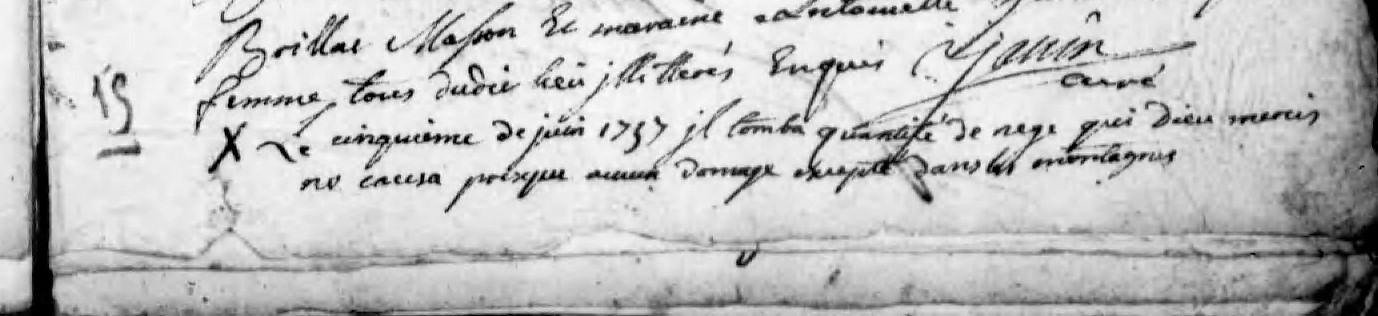 Boillat Masson Et maraine Antoinette
femme, tous dudit lieu jllitterés Enquis Jauin
curé
15
X Le cinquieme de juin 1757 jl tomba quantité de nege qui Dieu mercis
ne causa presque aucun domage excepté dans les montagnes